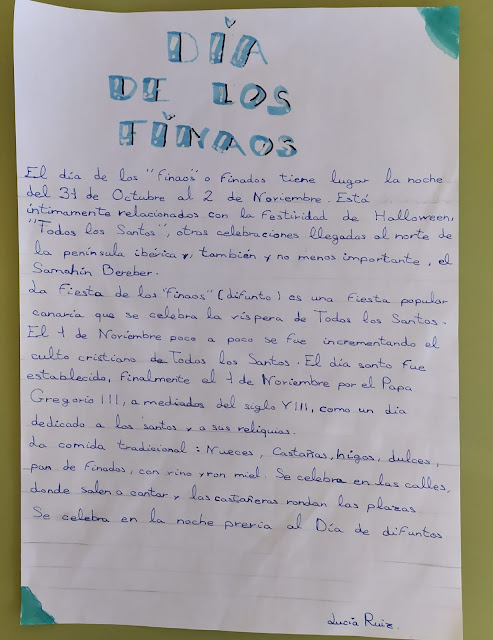 DÍA
DE LOS
FINAOS
El día de los "finaos" o Finados tiene lugar la noche
del 31 de Octubre al 2 de Noviembre. Está
íntimamente relacionados con la festividad de Halloween,
"Todos los Santos", otras celebraciones llegadas al norte de
la península ibérica y, también y no menos importante, el
Samahín Bereber.
La Fiesta de los "Finaos" (difunto) es una fiesta popular
canaria que se celebra la víspera de Todos los Santos.
El 1 de Noviembre poco a poco se fue incrementando el
culto cristiano de Todos los Santos. El día santo fue
establecido, finalmente el 1 de Noviembre por el Papa
Gregorio III, a mediados del siglo VIII, como un día
dedicado a los santos y a sus reliquias.
La comida tradicional: Nueces, Castañas, higos, dulces,
pan de finados, con vino y ron miel. Se celebra en las calles,
donde salen a cantar y las castañeras rondan las plazas
Se celebra en la noche previa al Día de difuntos
Lucía Ruiz.